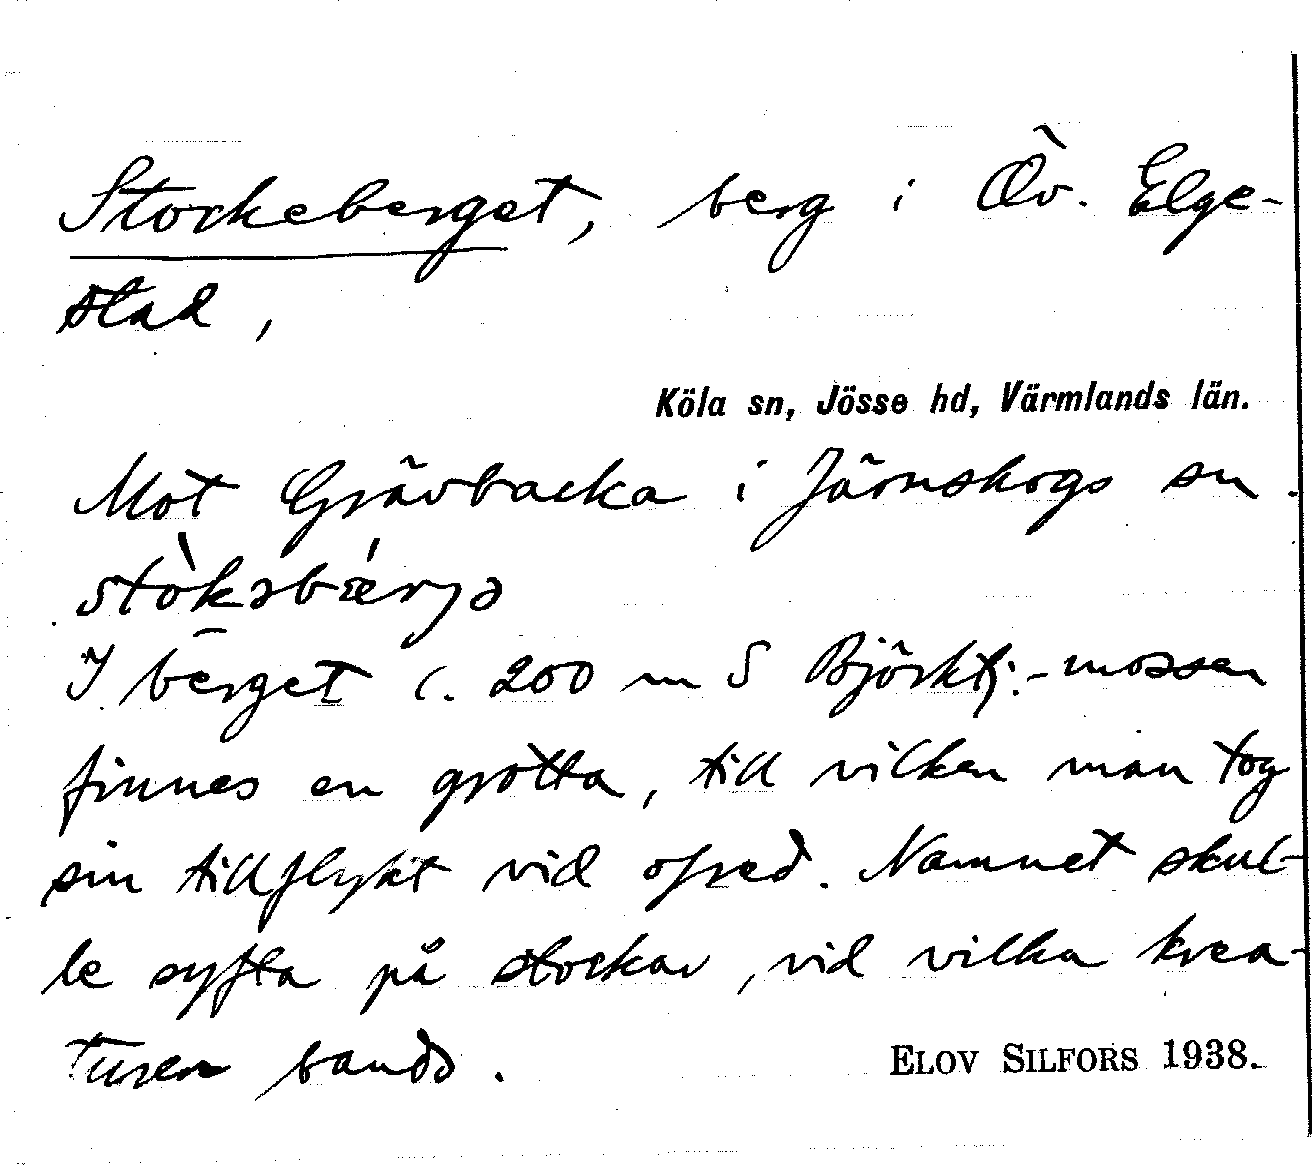 Stockeberget, berg i Öv. Elge-
stad,
Köla sn, Jösse hd, Värmlands län.
Mot Grävbacka i Järnskogs sn.
stòkəbǽrjə
I berget c. 200 m S Björktj.-mossen
finnes en grotta, till vilken man tog
sin tillflykt vid ofred. Namnet skul-
le syfta på stockar, vid vilka krea-
turen bands.
ELOV SILFORS 1938.